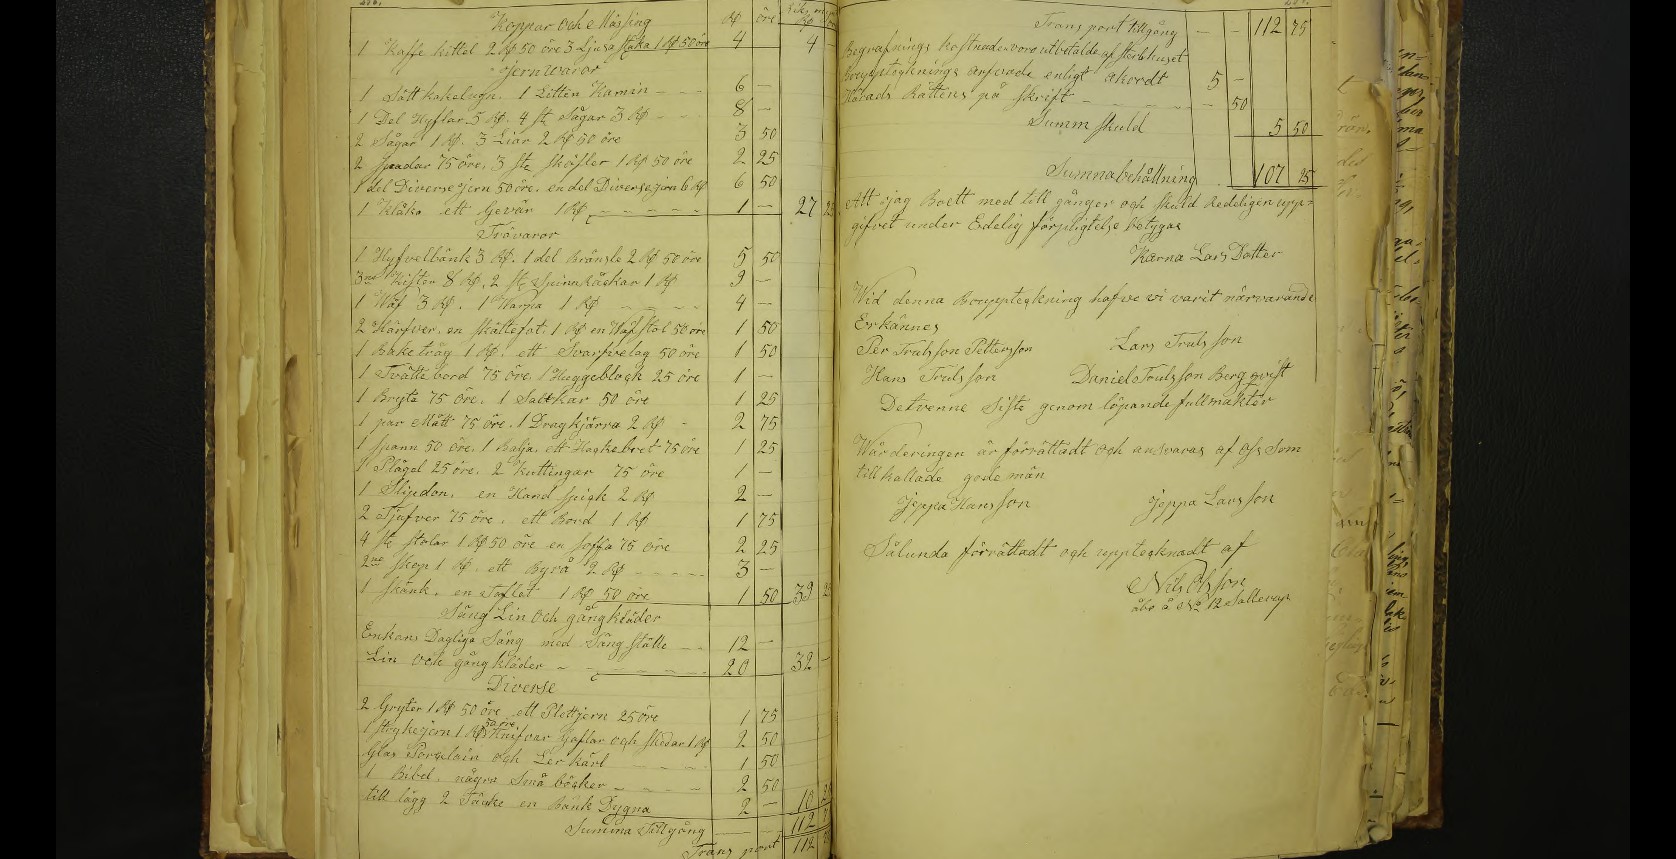 Koppar och Mässing
1 Kaffe kittel 2 Rd 50 öre 3 Ljusa staka 1 Rd 50 öre 4 4 –
Jernvaror
1 Sätt kakelugn. 1 Litten Kamin – – – 6 –
1 Del Hyflar 5 Rd. 4 st Sågar 3 Rd – – – 8 –
2 Sågar 1 Rd. 3 Liar 2 Rd 50 öre 3 50
2 Spadar 75 öre. 3 ste skoflar 1 Rd 50 öre 2 25
1 del Diverse jern 50 öre. en del Diverse jern 6 Rd 6 50
1 Klåka ett Gevär 1 Rd – – – – – 1 – 27 25
Trävaror
1 Hyfvelbänk 3 Rd. 1 del Bränsle 2 Rd 50 öre 5 50
3ne Kistor 8 Rd. 2 ste Spinnråckar 1 Rd 9 –
1 Wäf 3 Rd. 1 Harpa 1 Rd – – – – 4 –
2 Härfver. en skättefot. 1 Rd en Wäfstol 50 öre 1 50
1 Baketråg 1 Rd. ett Svarfvelag 50 öre 1 50
1 Tvättebord 75 öre. 1 Huggeblock 25 öre 1 –
1 Bryte 75 öre. 1 Saltkar 50 öre 1 25
1 par Mått 75 öre. 1 Dragkjärra 2 Rd – 2 75
1 spann 50 öre. 1 Balja. ett Hackebret 75 öre 1 25
1 Plågel 25 öre. 2 Kuttingar 75 öre 1 –
1 Slipdon. en Hand spigk 2 Rd 2 –
2 Tjufver 75 öre. ett Bord 1 Rd 1 75
4 ste stolar 1 Rd 50 öre en soffa 75 öre 2 25
2ne skep 1 Rd. ett Byrå 2 Rd – – – – – 3 –
1 skänk. en Toflet 1 Rd 50 öre 1 50 39 25
Säng Lin och gångkläder
Enkans Dagliga Säng med Säng ställe – – 12 –
Lin och gång kläder – – – – – – 20 32 –
Diverse
2 Gryter 1 Rd 50 öre ett Plettjern 25 öre 1 75
1 strykejern 1 Rd 50 öre Knifvar gaflar och skedar 1 Rd 2 50
Glas Porslain och Ler kärl – – – – 1 50
1 Bibel. några Små böcker – – – – 2 50
till lägg 2 Säcke en Bänk Dygna 2 – 10 25
Summa Tillgång 112 75
Trans port 112 75
Trans port tillgång – – 112 75
Begrafnings kostnader vore utbetalde af sterbhuset
Boupptecknings arfvode enligt akordt 5 –
Härads Rättens på skrift – – – – – – 50
Summ skuld 5 50
Summa behållning 107 25
Att jag Boett med till gånger och skuld Redeligen upp=
gifvet under Edelig förpligtelse betygas
Karna Lars Dotter
Wid denna Bouppteckning hafve vi varit närvarande
Erkännes
Per Truls son Pettersson Lars Truls son
Hans Truls son Daniel Truls son Bergqvist
Detvenne Siste genom löpande fullmakter
Wärderingen är förrättadt och ansvaras af oss Som
till kallade gode män
Jeppa Hansson Jeppa Larsson
Sålunda förrättadt och uppteknadt af
Nils Olsson
åbo å No 12 Sallerup